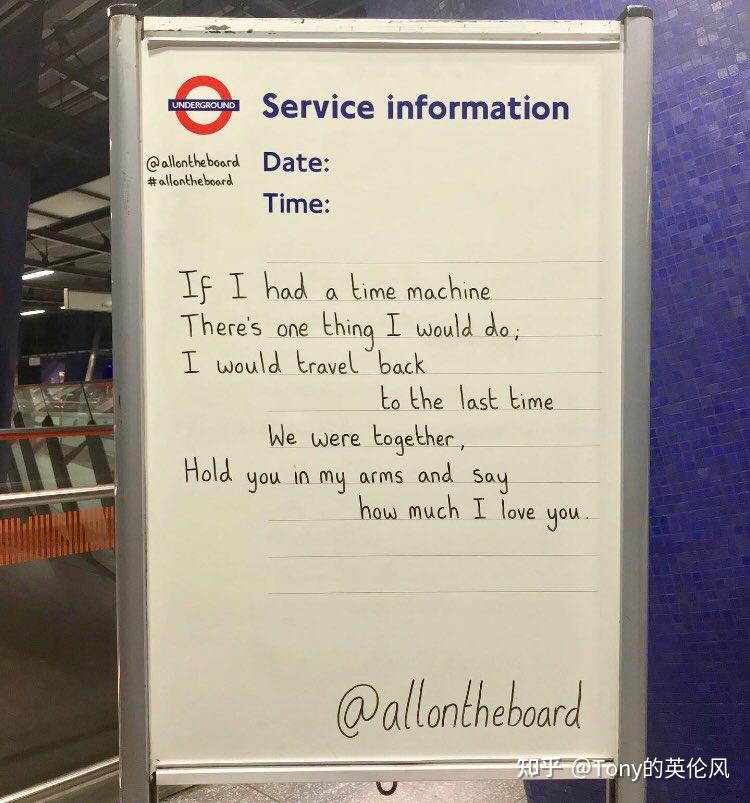 UNDERGROUND
Service information
@allontheboard
#allontheboard
Date:
Time:
If I had a time machine
There's one thing I would do;
I would travel back
to the last time
We were together,
Hold you in my arms and say
how much I love you.
@allontheboard
知乎 @Tony的英伦风